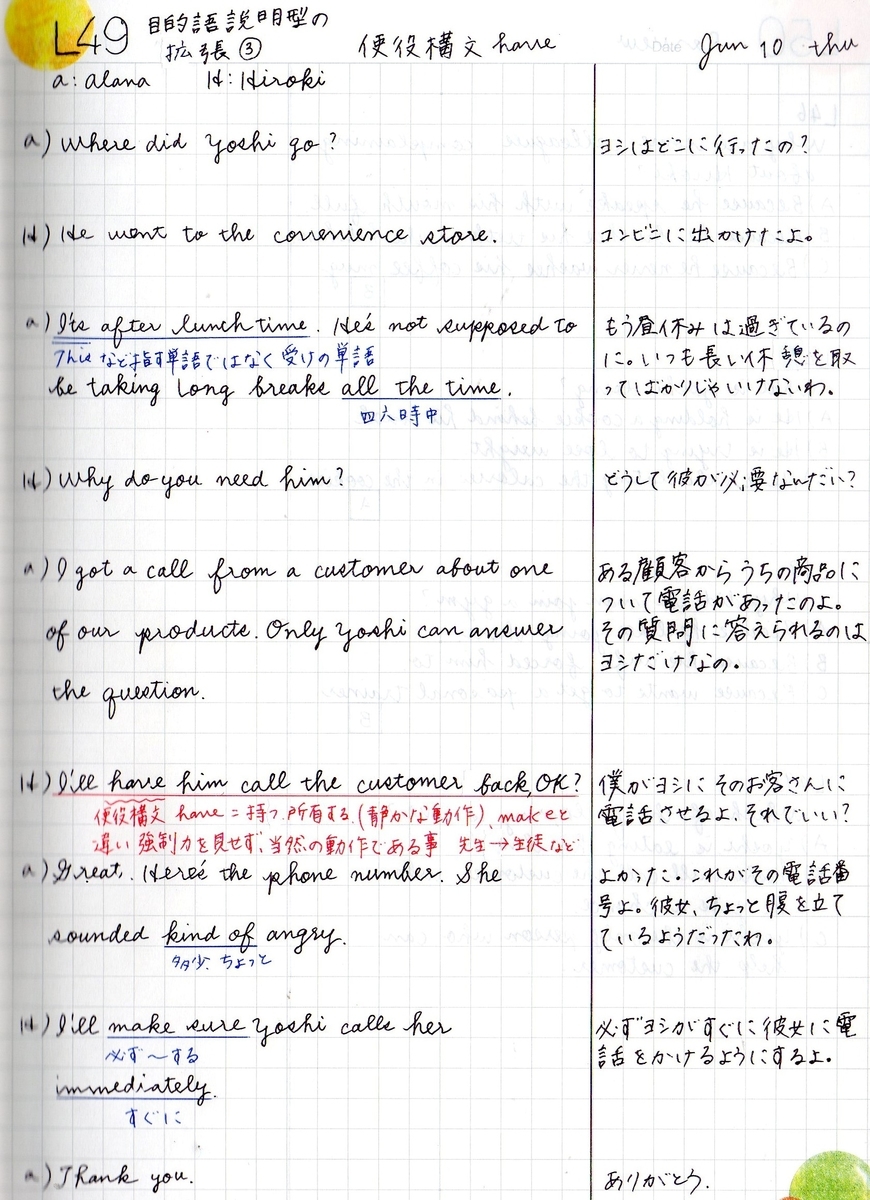 L49 目的語説明型の
拡張③ 使役構文 have Jun 10 thu
a: alana H: Hiroki
a) Where did Yoshi go? ヨシはどこに行ったの?
H) He went to the convenience store. コンビニに出かけたよ。
a) It's after lunch time. He's not supposed to もう昼休みは過ぎているの
This など指す単語ではなく受けの単語 に。いつも長い休憩を取
be taking long breaks all the time. ってばかりじゃいけないわ。
四六時中
H) Why do you need him? どうして彼が必要なんだい?
a) I got a call from a customer about one ある顧客からうちの商品に
ついて電話があったのよ。
of our products. Only Yoshi can answer その質問に答えられるのは
ヨシだけなの。
the question.
H) I'll have him call the customer back, OK? 僕がヨシにそのお客さんに
使役構文 have = 持つ、所有する(静かな動作)、makeと 電話させるよ、それでいい?
違い強制力を見せず、当然の動作である事 先生→生徒など
a) Great. Here's the phone number. She よかった。これがその電話番
号よ。彼女、ちょっと腹を立て
sounded kind of angry. ているようだったわ。
多少、ちょっと
H) I'll make sure Yoshi calls her 必ずヨシがすぐに彼女に電
必ず〜する 話をかけるようにするよ。
immediately.
すぐに
a) Thank you. ありがとう。